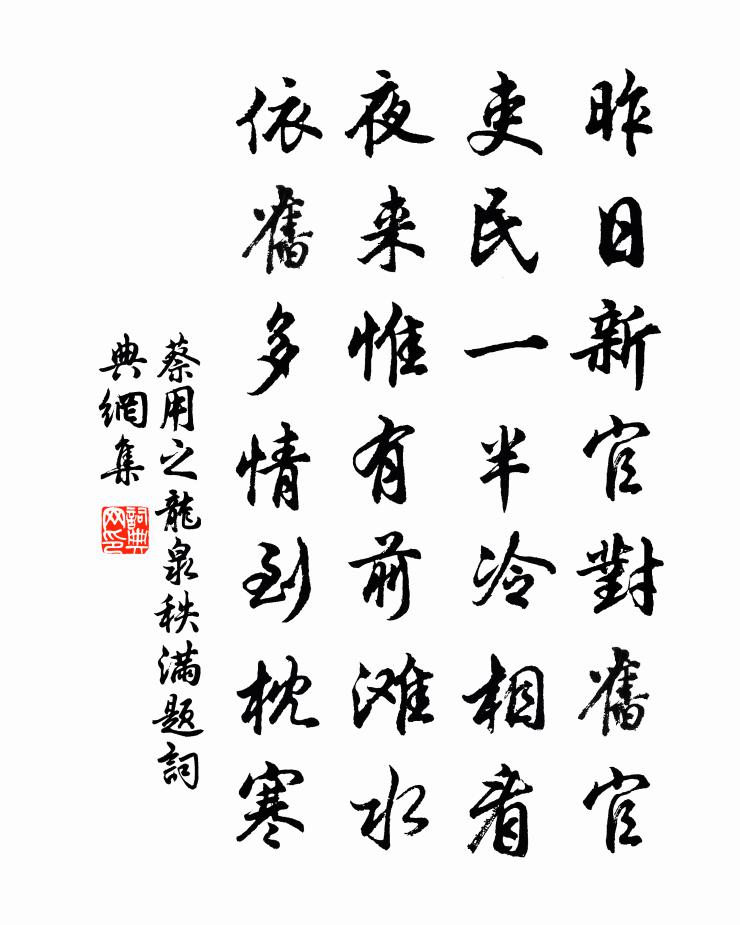 昨日新官對舊官
吏民一半冷相看
夜来惟有前滩水
依舊多情到枕寒
蔡用之龍泉秩滿题詞
典網集
詞典
网印